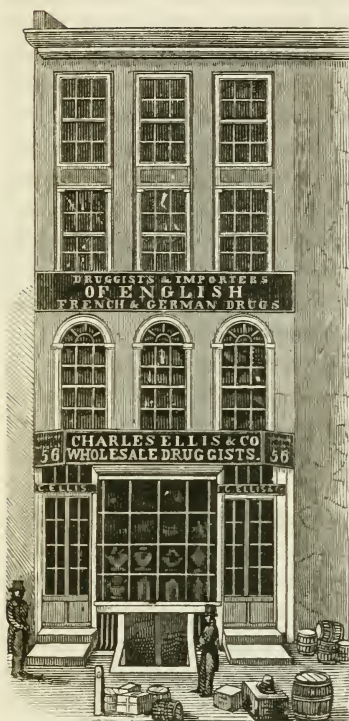 DRUGGISTS & IMPORTERS
OF ENGLISH
FRENCH & GERMAN DRUGS
CHARLES ELLIS & CO
56 WHOLESALE DRUGGISTS. 56
C. ELLIS
C. ELLIS & C